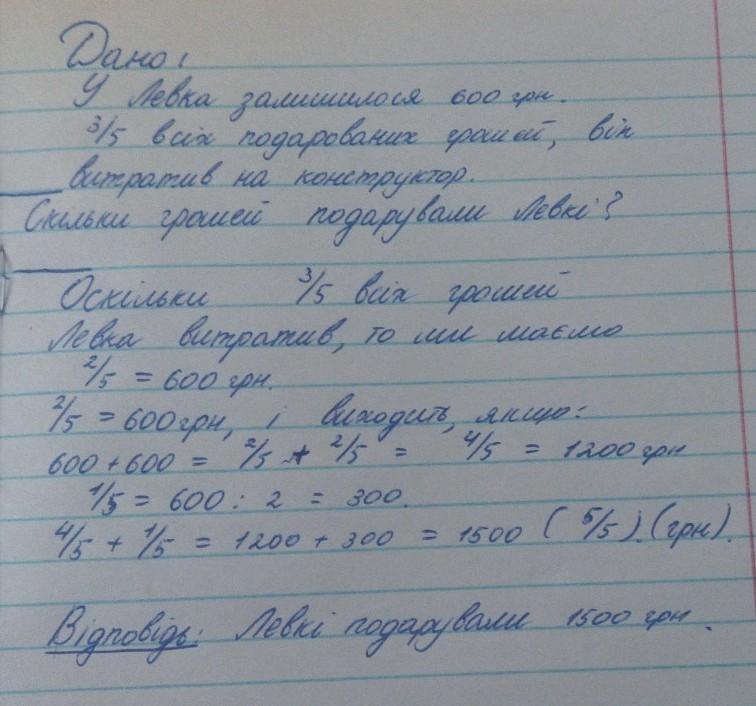 Дано:
У Левка залишилося 600 грн.
3/5 всіх подарованих грошей, він
витратив на конструктор.
Скільки грошей подарували Левкі?
Оскільки 3/5 всіх грошей
Левка витратив, то ми маємо
2/5 = 600 грн.
2/5 = 600 грн, і виходить, якщо:
600 + 600 = 2/5 + 2/5 = 4/5 = 1200 грн
1/5 = 600 : 2 = 300.
4/5 + 1/5 = 1200 + 300 = 1500 (5/5). (грн).
Відповідь: Левкі подарували 1500 грн.